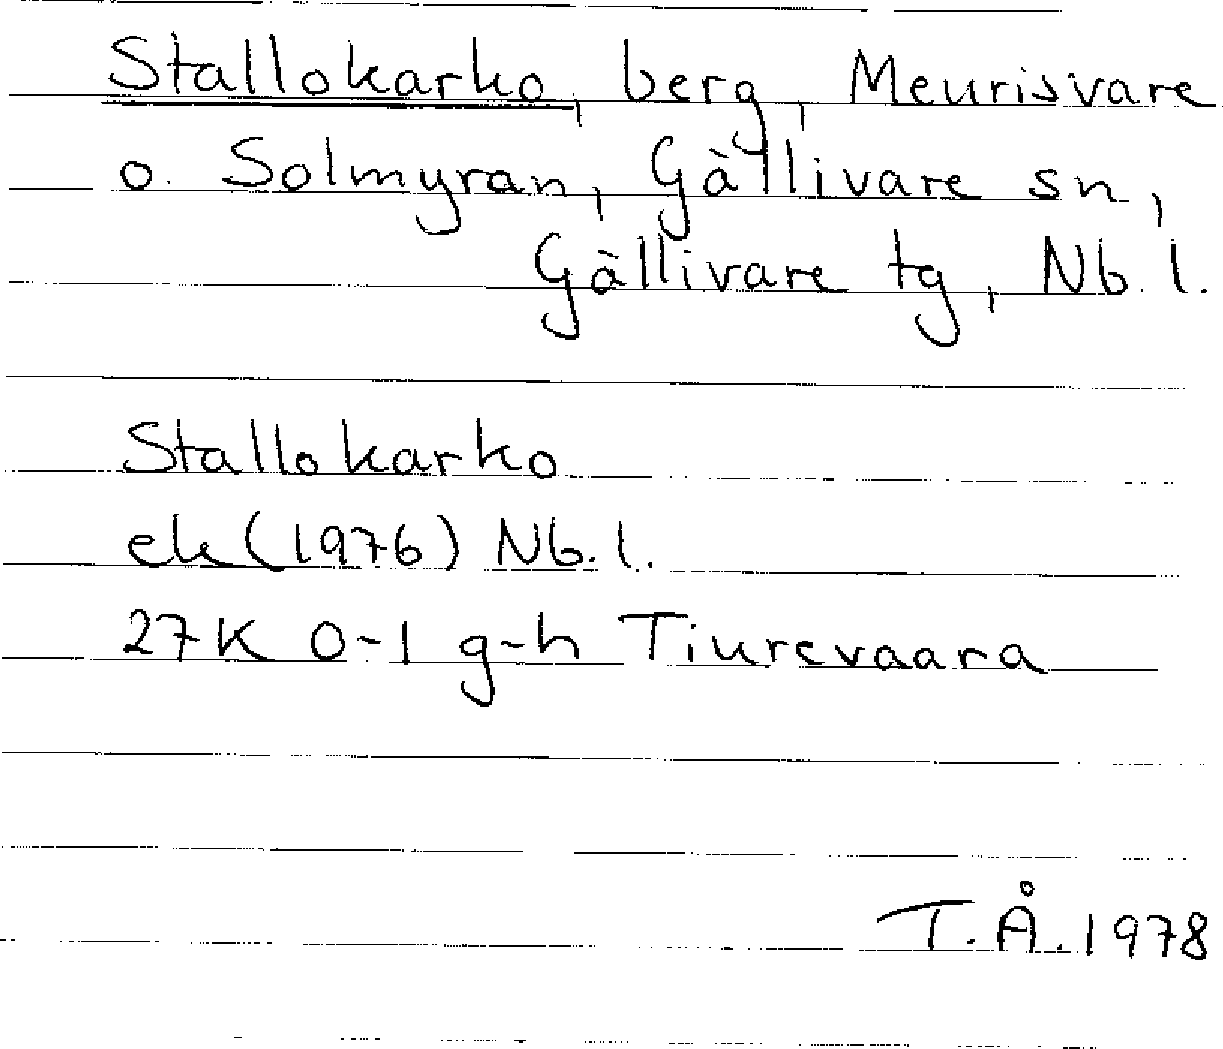 Stallokarko, berg, Meurisvare
o. Solmyran, Gällivare sn,
Gällivare tg, Nb. l.
Stallokarko
ek (1976) Nb. l.
27K 0-1 g-h Tiurevaara
T.Å. 1978